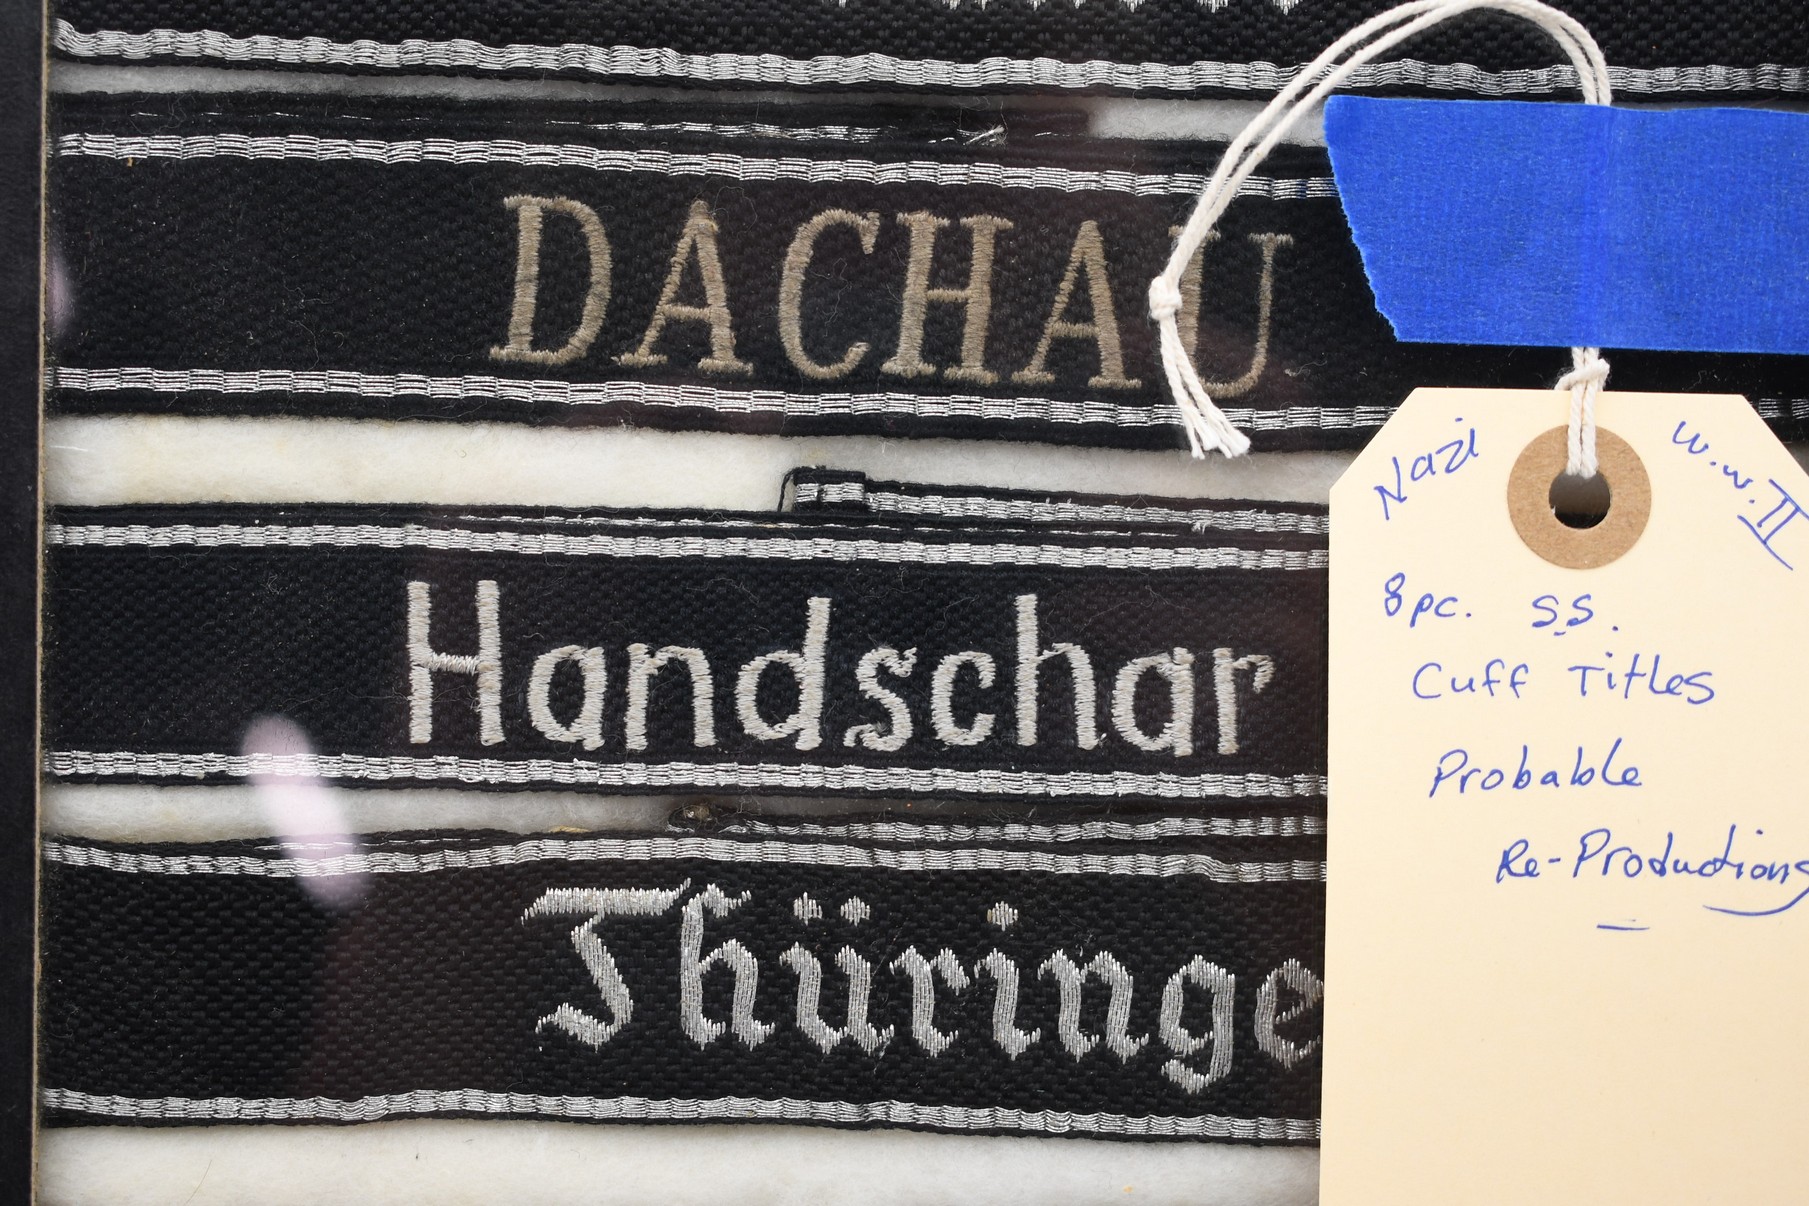 DACHAU
Handschar
Thüringe
Nazi W.W.II
8pc. S.S.
Cuff Titles
Probable
Re-Productions